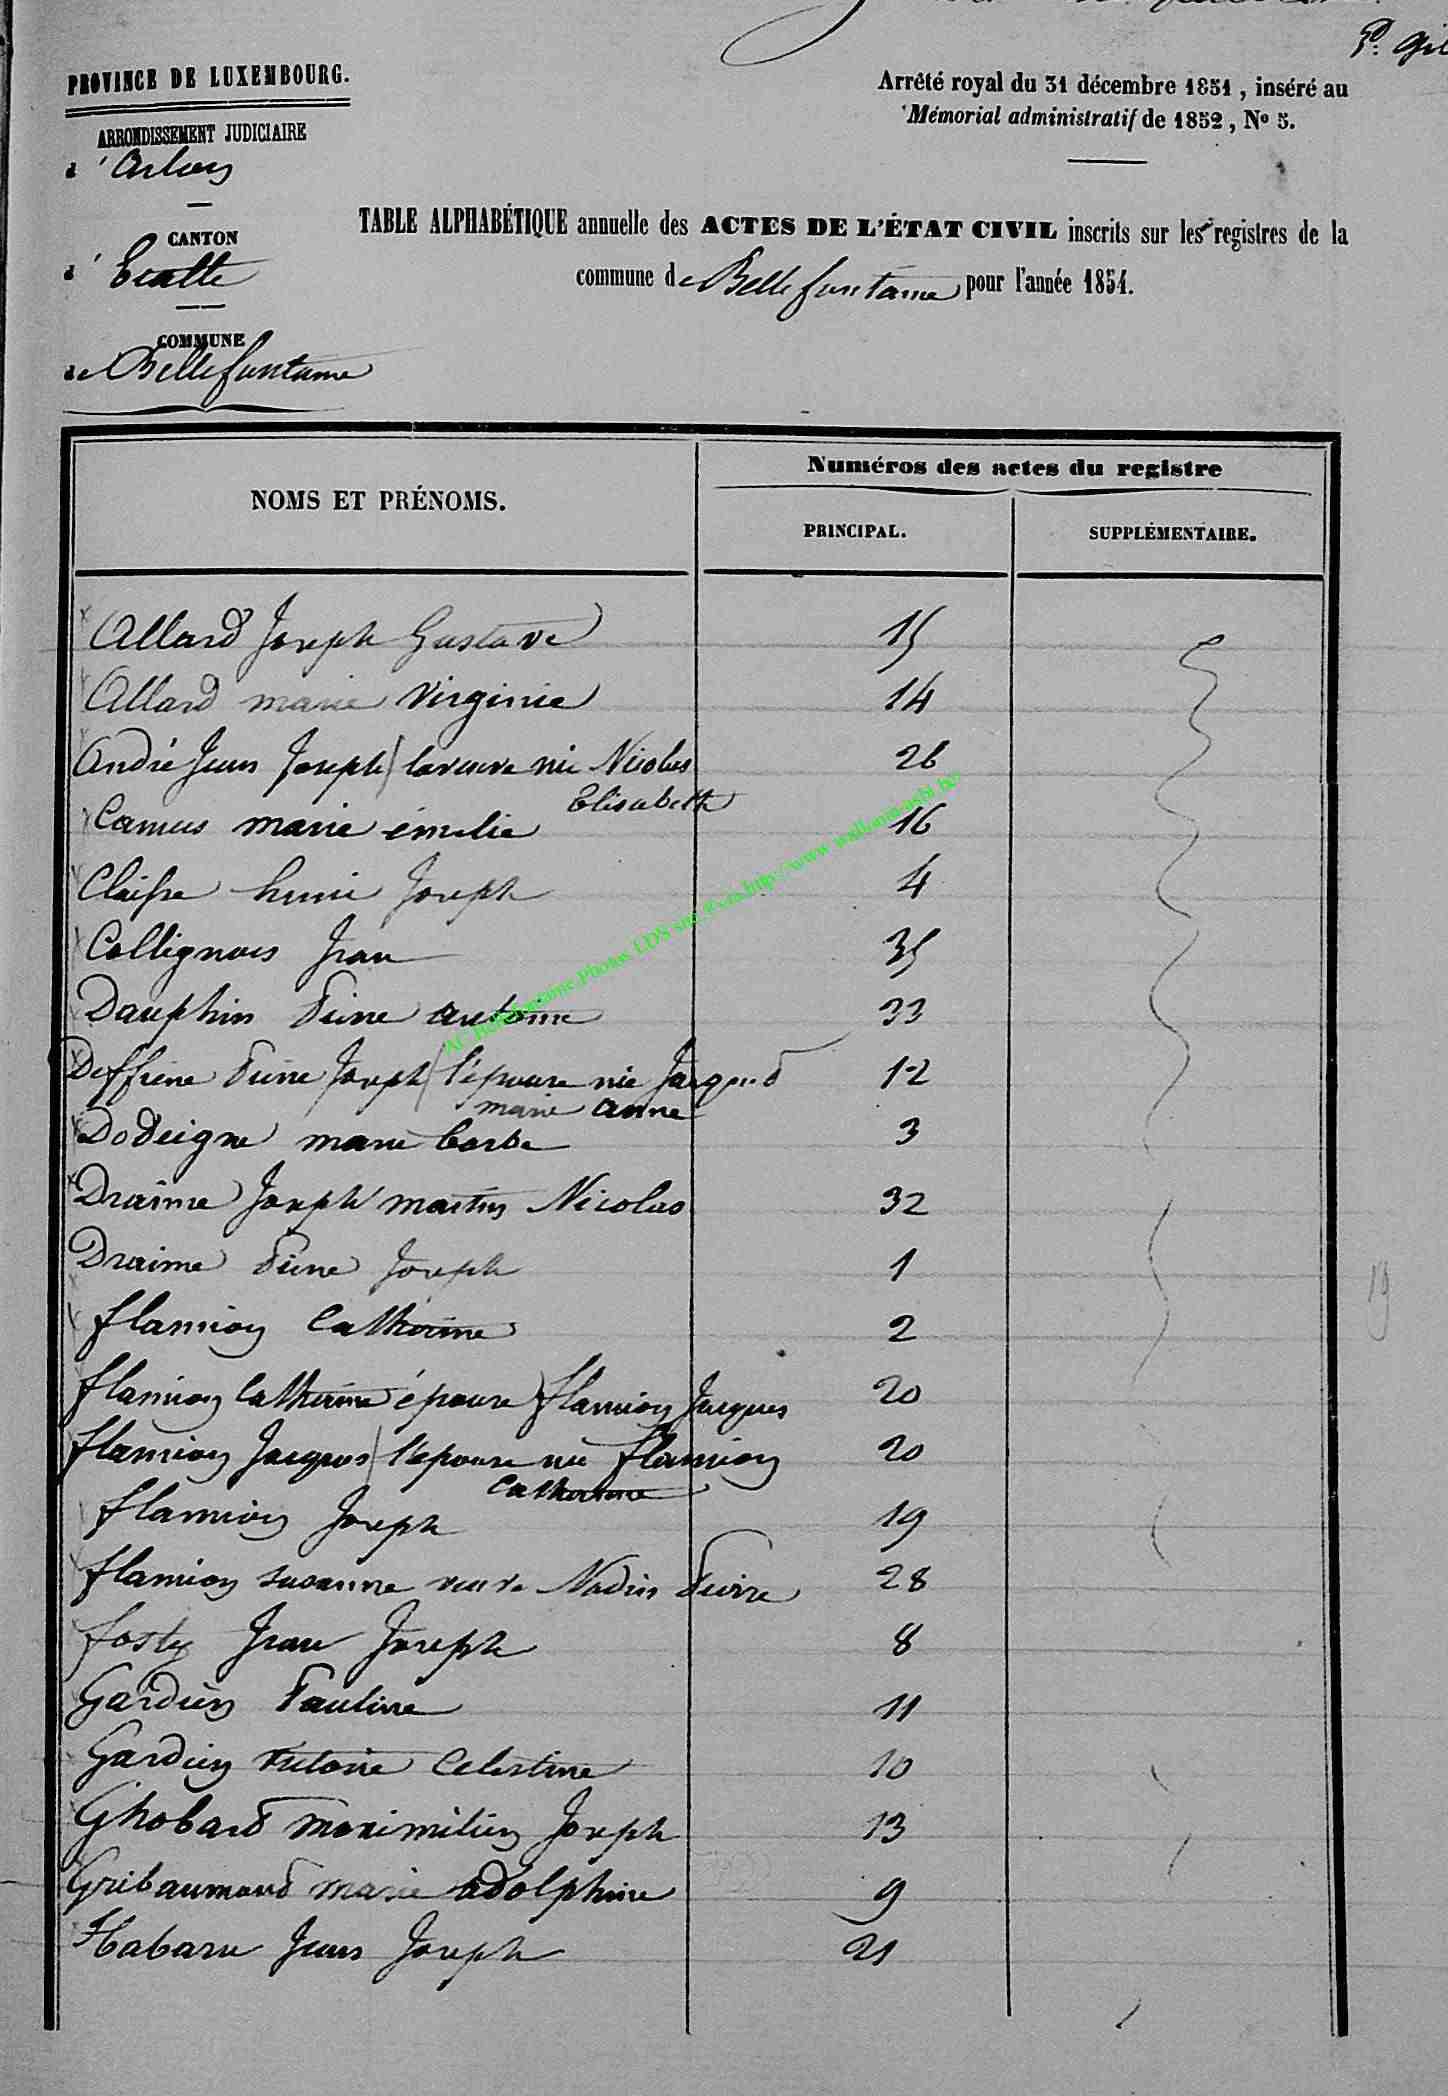 PROVINCE DE LUXEMBOURG.
ARRONDISSEMENT JUDICIAIRE
d'Arlon
CANTON
d'Etalle
COMMUNE
de Bellefontaine
Arrêté royal du 31 décembre 1851, inséré au
Mémorial administratif de 1852, No 5.
TABLE ALPHABÉTIQUE annuelle des ACTES DE L'ÉTAT CIVIL inscrits sur les registres de la
commune de Bellefontaine pour l'année 1854.
NOMS ET PRÉNOMS.
Numéros des actes du registre
PRINCIPAL.
SUPPLÉMENTAIRE.
Allard Joseph Gustave 15
Allard marie Virginie 14
André Jean Joseph / la veuve née Nicolas 26
Elisabeth
Camus marie émelie 16
Claisse henri Joseph 4
Collignon Jean 35
Dauphin Pierre antoine 33
Deffrene Pierre Joseph / l'épouse née Jacquard 12
marie anne
Dodeigne marie barbe 3
Draime Joseph martin Nicolas 32
Draime Pierre Joseph 1
flamion Catherine 2
flamion Catherine épouse flamion Jacques 20
flamion Jacques / l'épouse née flamion 20
Catherine
flamion Joseph 19
flamion susanne veuve Nadin Pierre 28
fosty Jean Joseph 8
Gardien Pauline 11
Gardien Victoire Celestine 10
Ghobard maximilien Joseph 13
Gribaumond marie adolphine 9
Habaru Jean Joseph 21
19